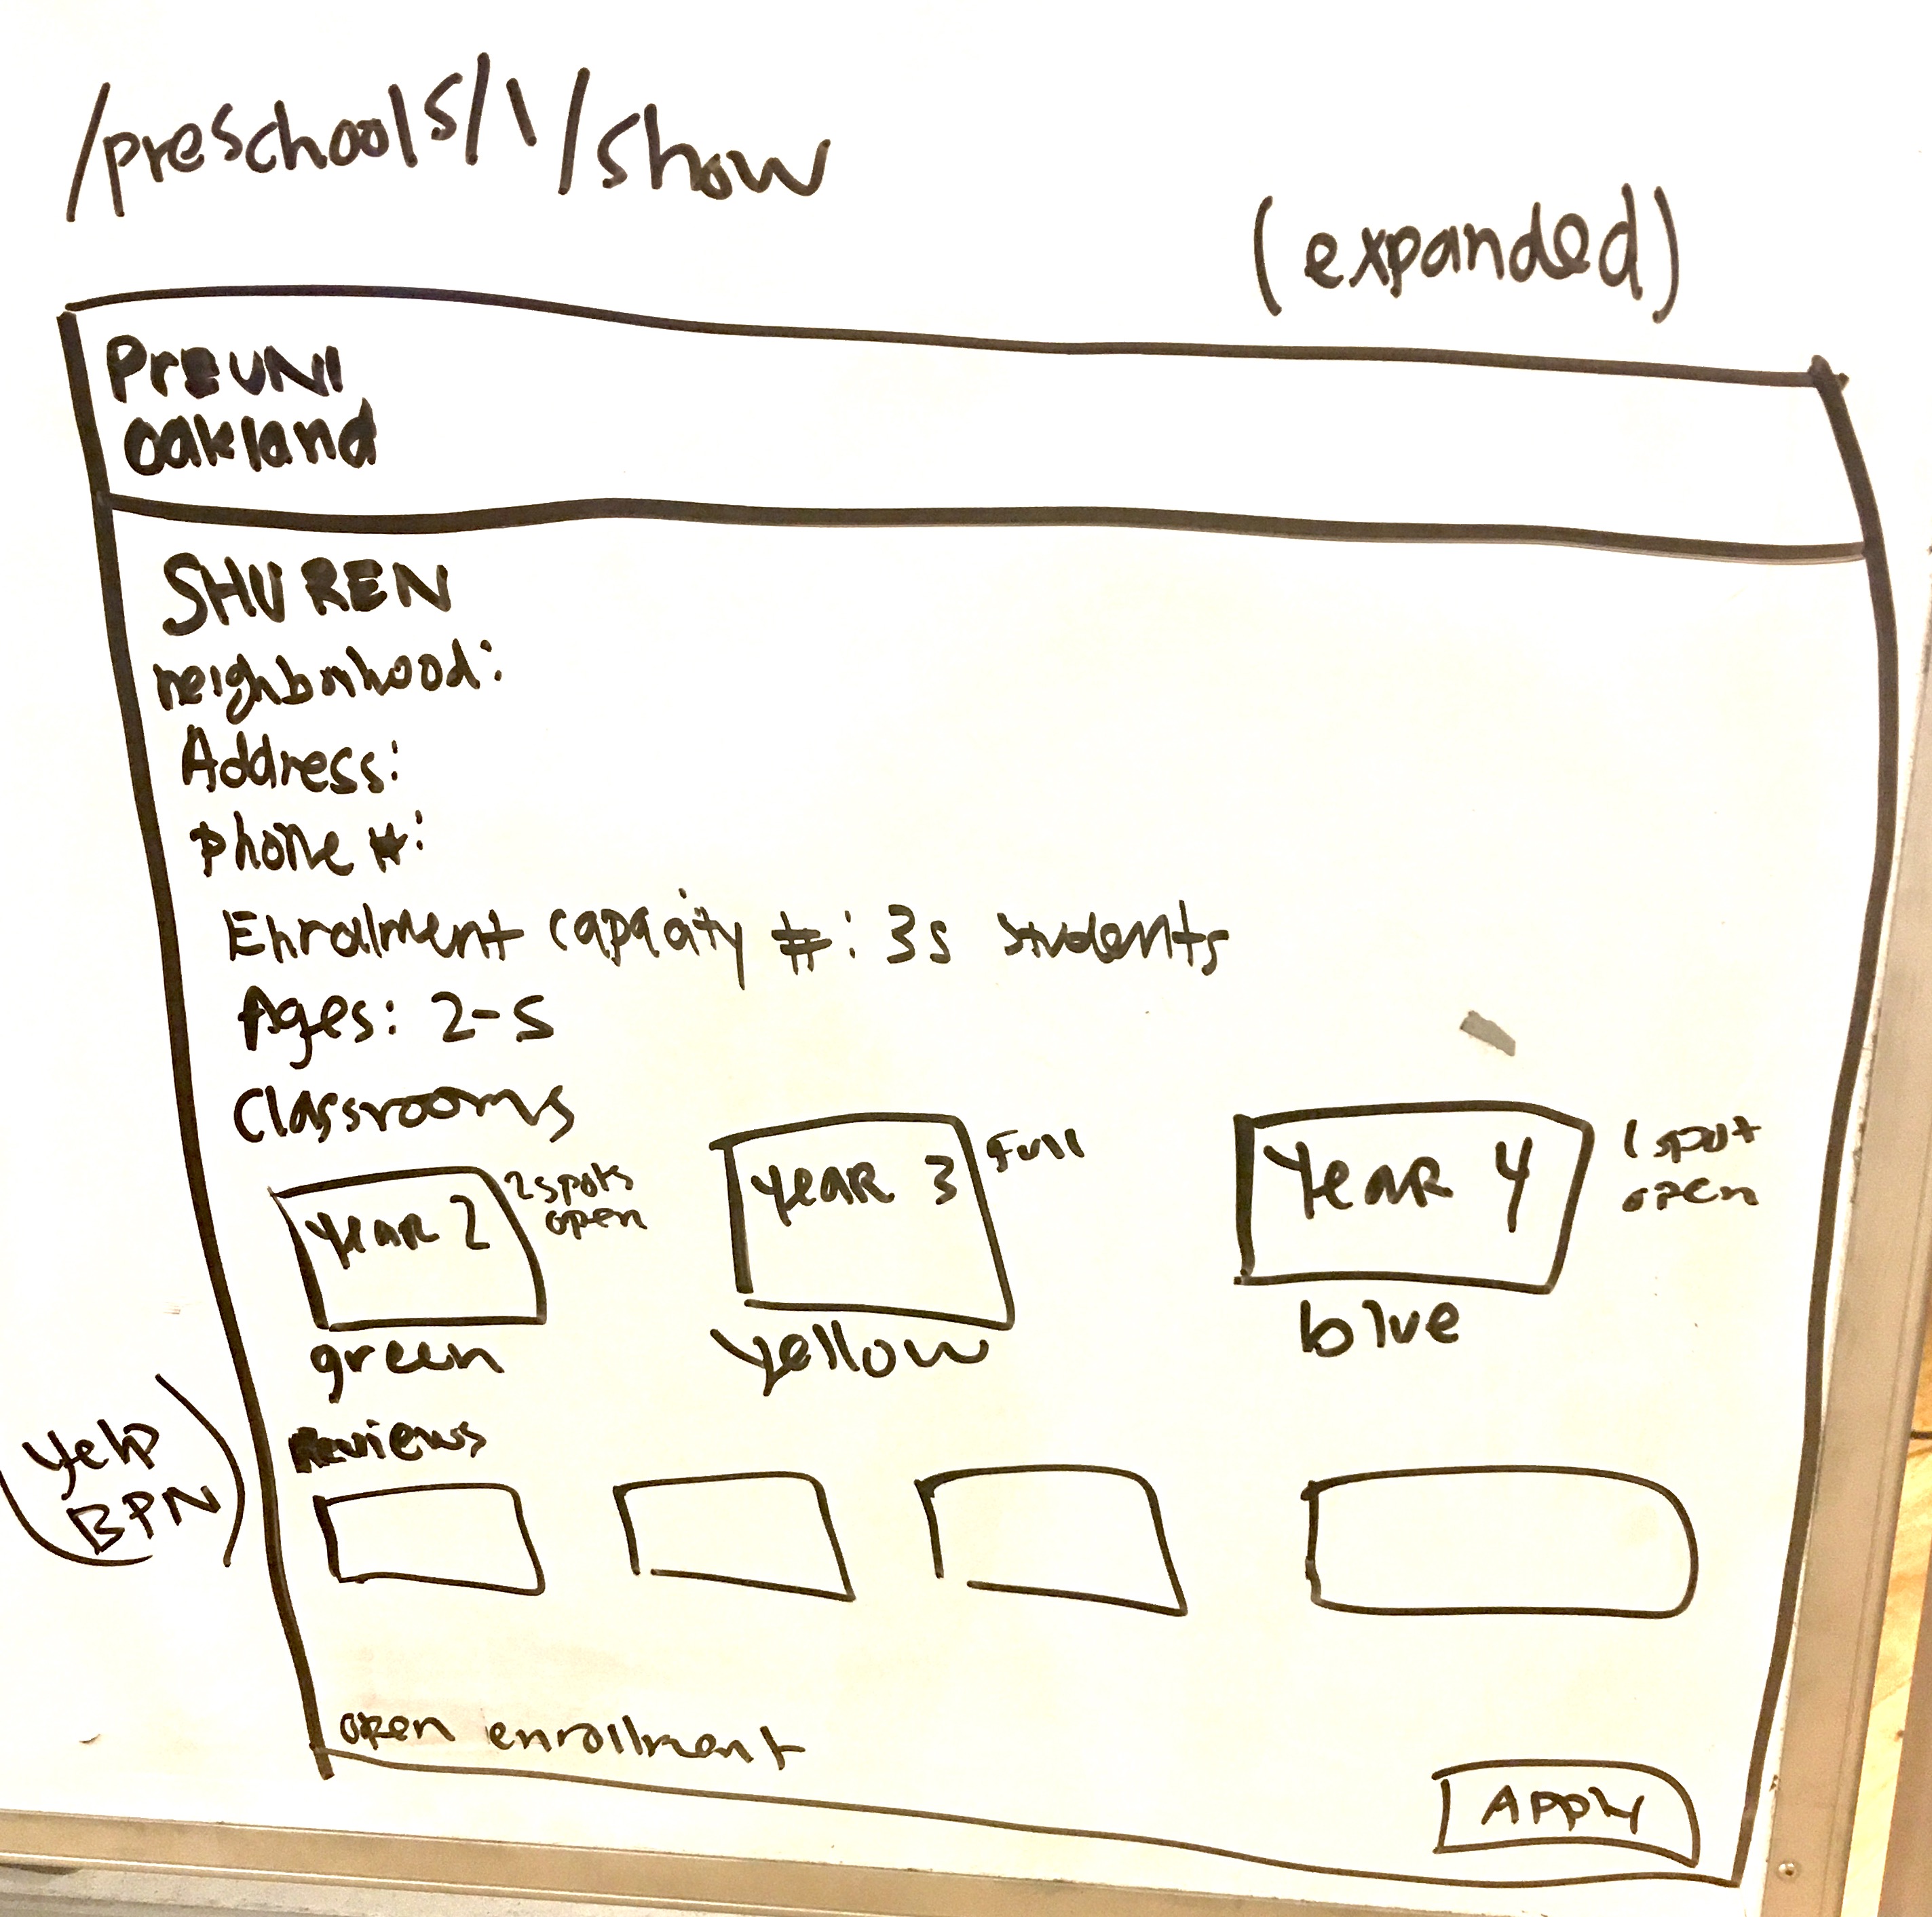 /preschools/1/show
(expanded)
PreUNI
Oakland
SHU REN
neighborhood:
Address:
phone #:
Enrollment capacity #: 35 students
Ages: 2-5
Classrooms
YEAR 2
2 spots
open
green
YEAR 3
Full
yellow
YEAR 4
1 spot
open
blue
Reviews
yelp
BPN
open enrollment
APPLY